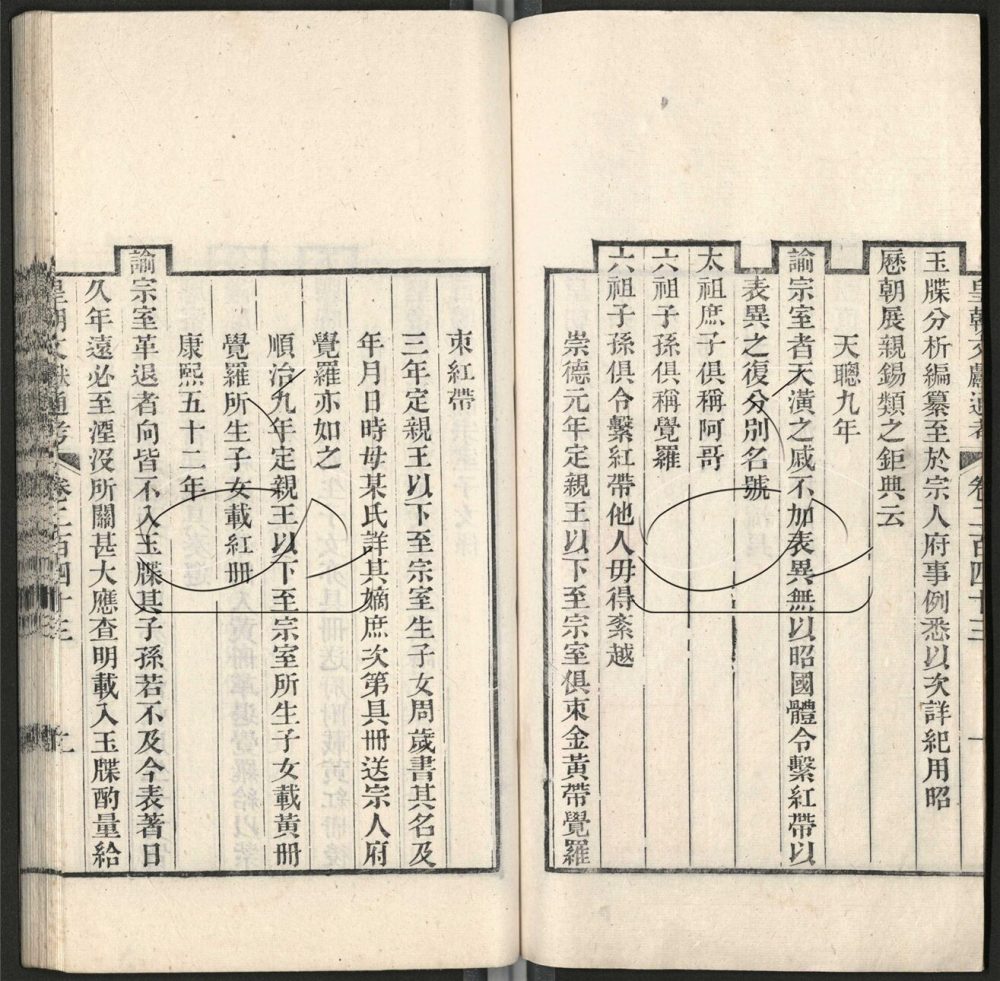 皇朝文獻通考 卷二百四十三 一
玉牒分析編纂至於宗人府事例悉以次詳紀用昭
歷朝展親錫類之鉅典云
天聰九年
諭宗室者天潢之戚不加表異無以昭國體令繫紅帶以
表異之復分別名號
太祖庶子俱稱阿哥
六祖子孫俱稱覺羅
六祖子孫俱令繫紅帶他人毋得紊越
崇德元年定親王以下至宗室俱束金黃帶覺羅
束紅帶
三年定親王以下至宗室生子女周歲書其名及
年月日時母某氏詳其嫡庶次第具冊送宗人府
覺羅亦如之
順治九年定親王以下至宗室所生子女載黃冊
覺羅所生子女載紅冊
康熙五十二年
諭宗室革退者向皆不入玉牒其子孫若不及今表著日
久年遠必至湮沒所關甚大應查明載入玉牒酌量給
皇朝文獻通考 卷二百四十三